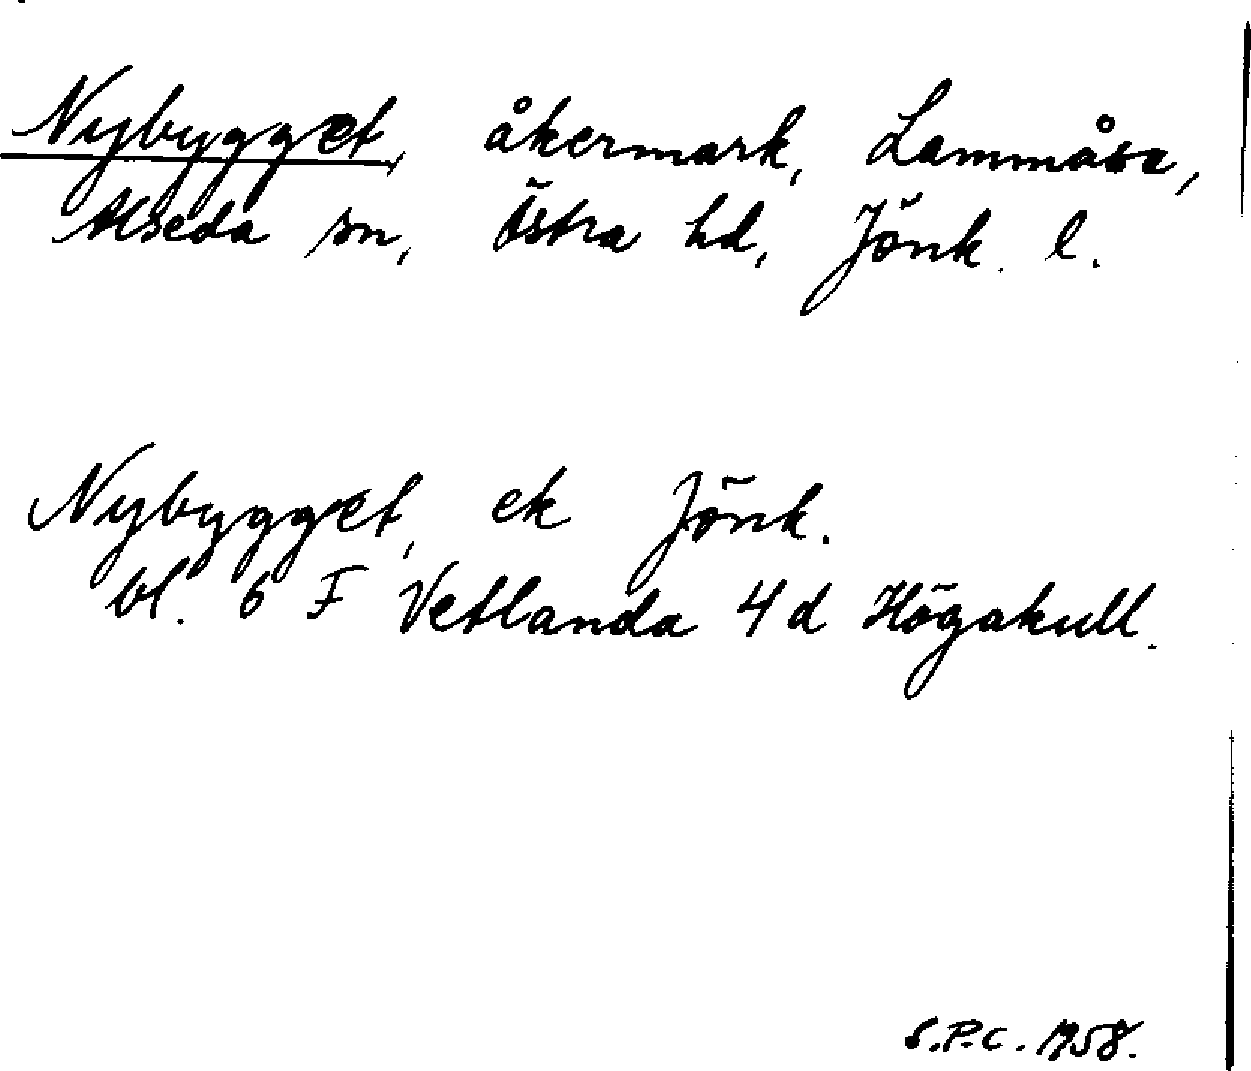 Nybygget, åkermark, Lammåsa,
Alseda sn, Östra hd, Jönk. l.
Nybygget, ek Jönk.
bl. 6 F Vetlanda 4d Högakull.
S.P.C. 1958.